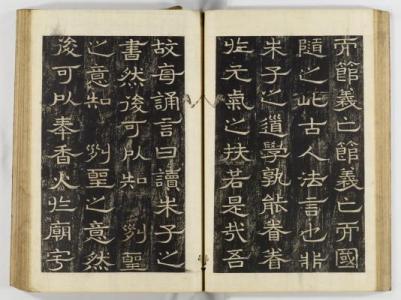 而節義亡節義亡而國
隨之此古人法言也非
朱子之道學孰能眷眷
於元氣之扶若是哉吾
故每誦言曰讀朱子之
書然後可以知 列聖
之意知 列聖之意然
後可以奉香火於廟宇